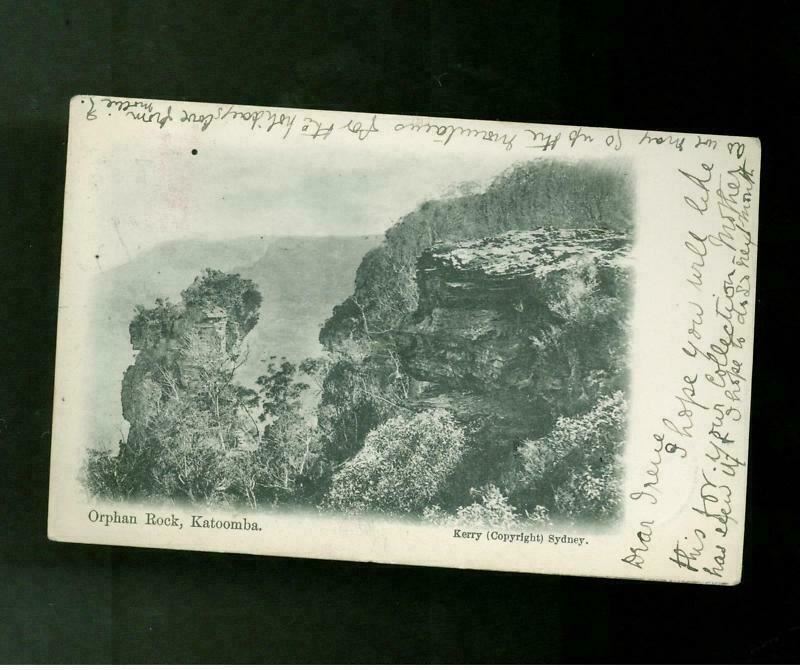 Orphan Rock, Katoomba.
Kerry (Copyright) Sydney.
Dear Irene
I hope you will like
this for your Collection Mother
has seen it & I hope to do so next month
as we may go up the mountains for the holidays love from
Mollie